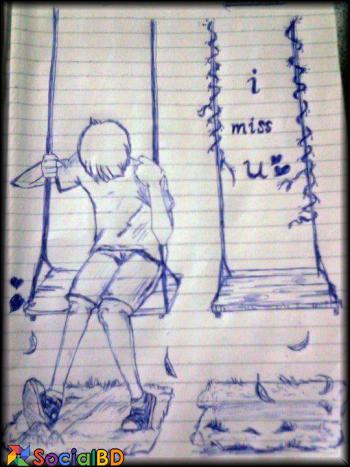 i
miss
u
SocialBD